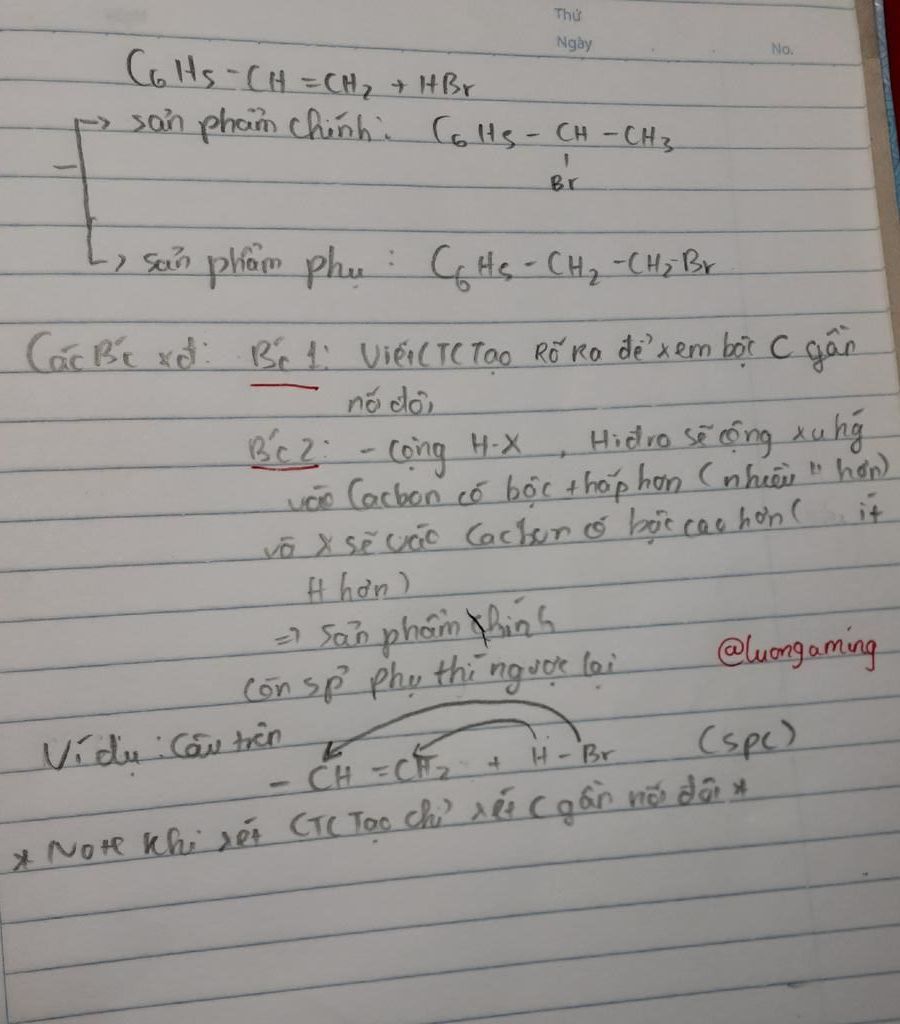 Thứ
Ngày
No.
C6H5-CH=CH2 + HBr
→ sản phẩm chính: C6H5 - CH - CH3
Br
→ sản phẩm phụ : C6H5 - CH2 - CH2-Br
Các Bc xđ: Bc 1: Viết CTCTạo Rõ Ra để xem bậc C gần
nối đôi
Bc 2: - Cộng H-X , Hiđro sẽ cộng xu hg
vào Cacbon có bậc thấp hơn (nhiều H hơn)
và X sẽ vào Cacbon có bậc cao hơn ( ít
H hơn)
=> sản phẩm chính
còn sp phụ thì ngược lại
@luongaming
Ví dụ : Câu trên
- CH = CH2 + H - Br (spc)
* Note Khi xét CTCTạo chỉ xét C gần nối đôi *